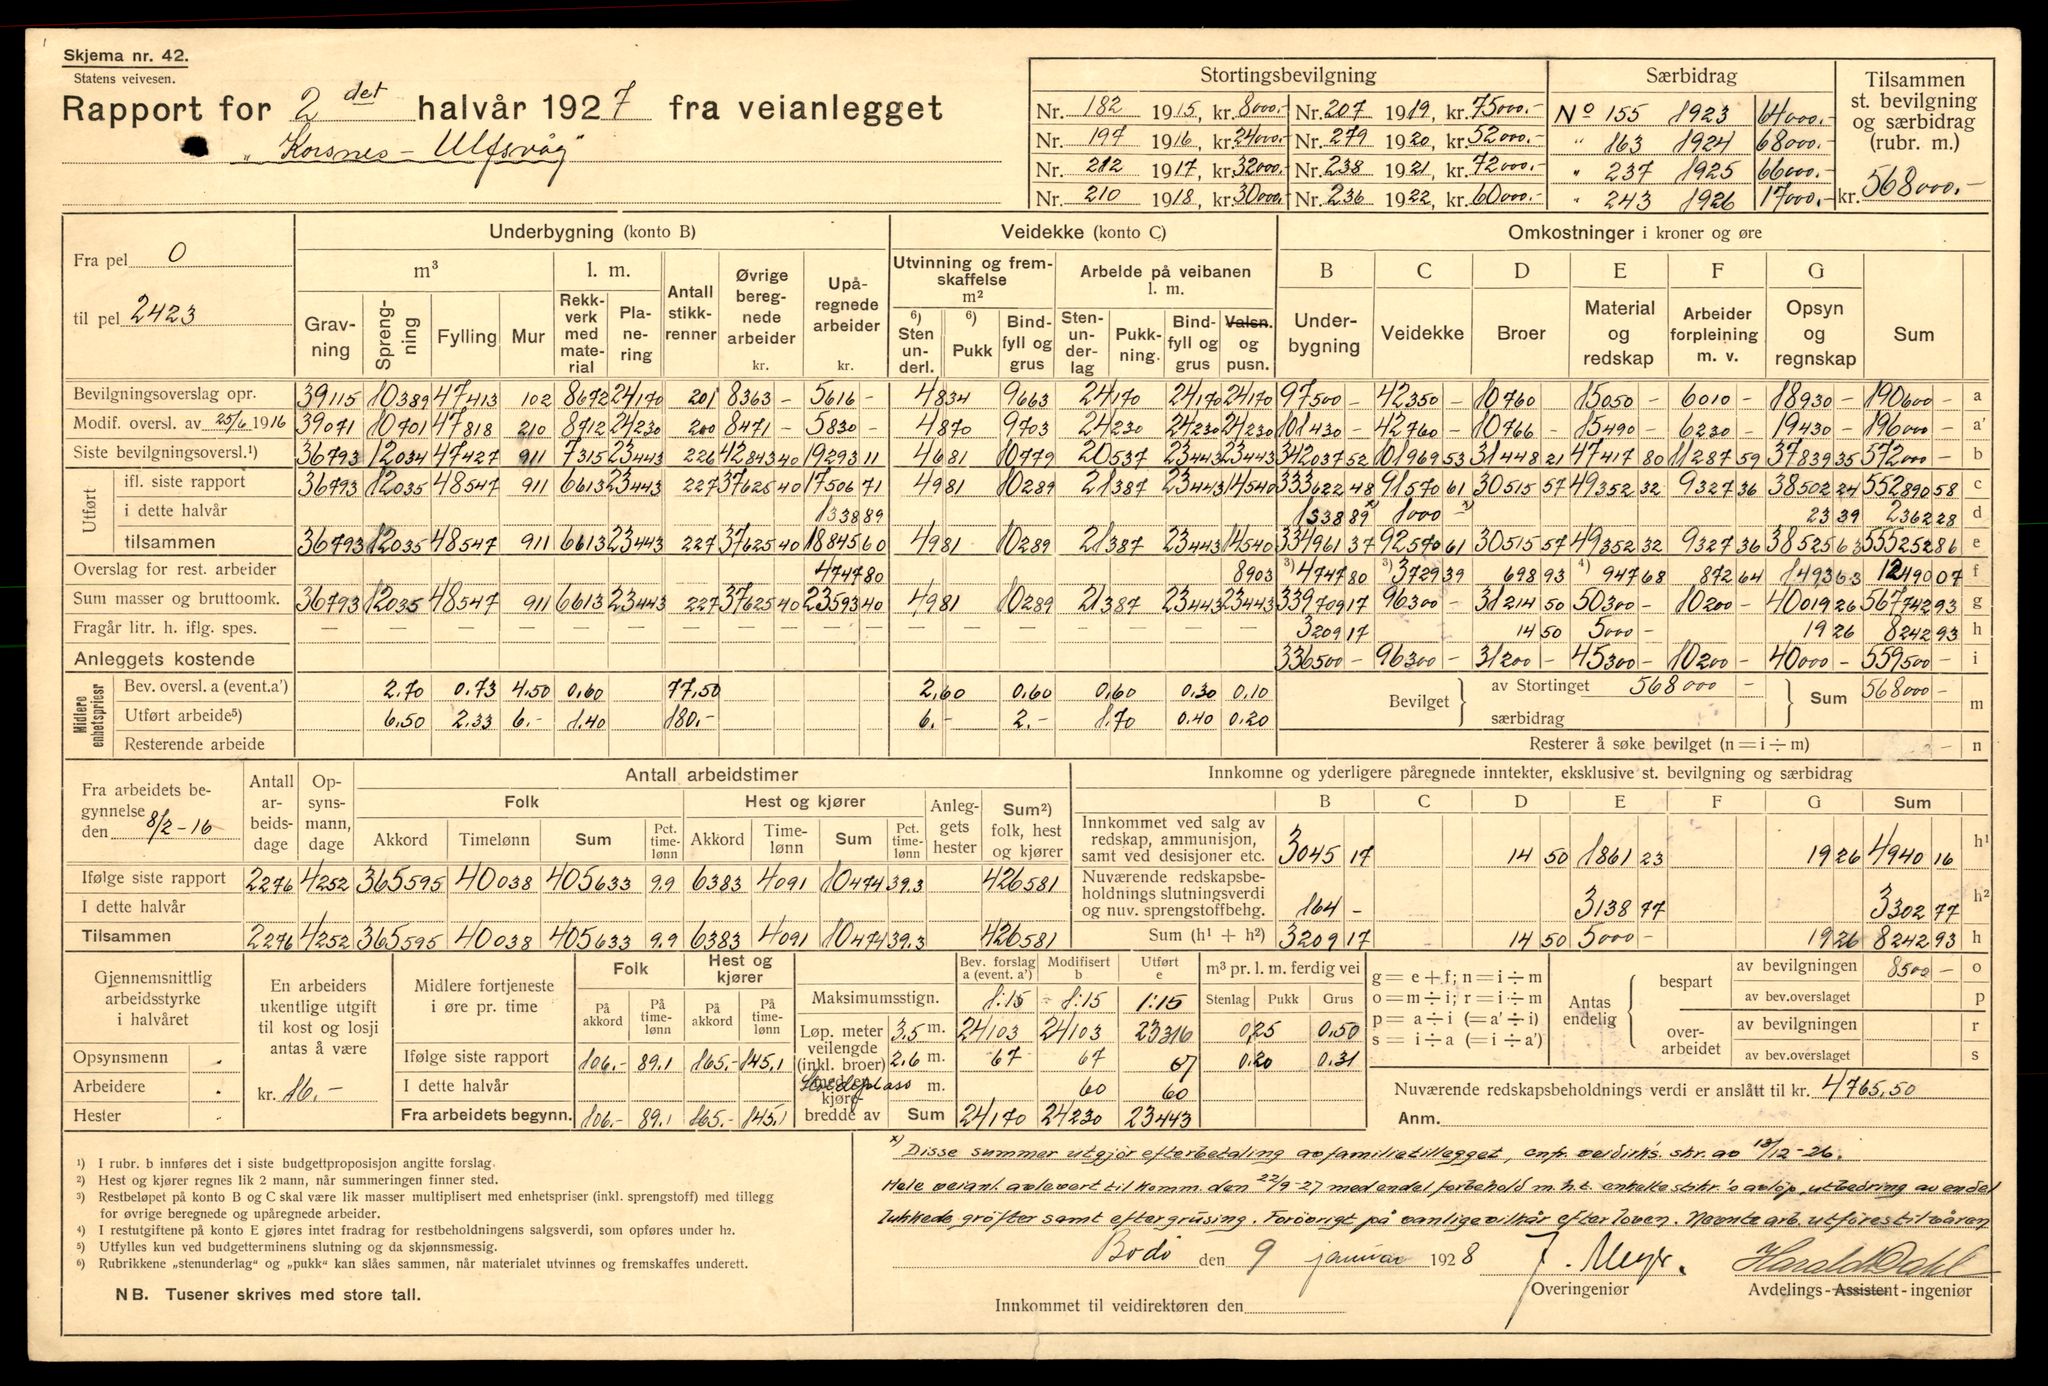 Skjema nr. 42.
Statens veivesen.
Rapport for 2det halvår 1927 fra veianlegget
„Korsnes – Ulfsvåg"
Stortingsbevilgning | Særbidrag | Tilsammen st. bevilgning og særbidrag (rubr. m.)
Nr. 182 1915, kr. 8000.- Nr. 207 1919, kr. 75000.- No 155 1923 64000.-
Nr. 197 1916, kr. 24000.- Nr. 279 1920, kr. 52000.- " 163 1924 68000.-
Nr. 212 1917, kr. 32000.- Nr. 238 1921, kr. 72000.- " 237 1925 66000.-
Nr. 210 1918, kr. 30000.- Nr. 236 1922, kr. 60000.- " 243 1926 17000.- kr. 568000.-
Fra pel 0
til pel 2423
Underbygning (konto B) | Veidekke (konto C) | Omkostninger i kroner og øre
m³ | l. m. | Antall stikkrenner | Øvrige beregnede arbeider kr. | Upåregnede arbeider kr. | Utvinning og fremskaffelse m² | Arbeide på veibanen l. m. | B | C | D | E | F | G
Gravning | Sprengning | Fylling | Mur | Rekkverk med material | Planering | ⁶) Sten underl. | ⁶) Pukk | Bindfyll og grus | Stenunderlag | Pukkning. | Bindfyll og grus | Valsn. og pusn. | Underbygning | Veidekke | Broer | Material og redskap | Arbeider forpleining m. v. | Opsyn og regnskap | Sum
Bevilgningsoverslag opr. 39115 10389 47413 102 8672 24170 201 8363 – 5616 – 4834 9663 24170 24170 24170 97500 – 42350 – 10760 15050 – 6010 – 18930 – 190600 – a
Modif. oversl. av 25/6 1916 39071 10701 47818 210 8712 24230 200 8471 – 5830 – 4870 9703 24230 24230 24230 101430 – 42760 – 10766 15490 – 6230 – 19430 – 196000 – a'
Siste bevilgningsoversl.¹) 36793 12034 47427 911 7315 23443 226 42843 40 19293 11 4681 10779 20537 23443 23443 342037 52 101969 53 31448 21 47417 80 11287 59 37839 35 572000 – b
Utført
ifl. siste rapport 36793 12035 48547 911 6613 23443 227 37625 40 17506 71 4981 10289 21387 23443 14540 333622 48 91570 61 30515 57 49352 32 9327 36 38502 24 552890 58 c
i dette halvår 1338 89 1338 89 x) 1000 x) 23 39 2362 28 d
tilsammen 36793 12035 48547 911 6613 23443 227 37625 40 18845 60 4981 10289 21387 23443 14540 334961 37 92570 61 30515 57 49352 32 9327 36 38525 63 555252 86 e
Overslag for rest. arbeider 4747 80 8903 ³) 4747 80 ³) 3729 39 698 93 ⁴) 947 68 872 64 1493 63 12490 07 f
Sum masser og bruttoomk. 36793 12035 48547 911 6613 23443 227 37625 40 23593 40 4981 10289 21387 23443 23443 339709 17 96300 – 31214 50 50300 – 10200 – 40019 26 567742 93 g
Fragår litr. h. iflg. spes. 3209 17 14 50 5000 – 19 26 8242 93 h
Anleggets kostende 336500 – 96300 – 31200 – 45300 – 10200 – 40000 – 559500 – i
Midlere enhetspriser
Bev. oversl. a (event.a') 2.70 0.73 4.50 0.60 77.50 2.60 0.60 0.60 0.30 0.10
Utført arbeide⁵) 6.50 2.33 6.- 1.40 180.- 6.- 2.- 1.70 0.40 0.20
Resterende arbeide
Bevilget av Stortinget 568000 – særbidrag Sum 568000 – m
Resterer å søke bevilget (n = i ÷ m) – n
Fra arbeidets begynnelse den 8/2-16
Antall arbeidsdage | Opsynsmann, dage | Antall arbeidstimer
Folk | Hest og kjører | Anleggets hester | Sum²) folk, hest og kjører
Akkord | Timelønn | Sum | Pct. timelønn | Akkord | Timelønn | Sum | Pct. timelønn
Ifølge siste rapport 2276 4252 365595 40038 405633 9.9 6383 4091 10474 39.3 426581
I dette halvår
Tilsammen 2276 4252 365595 40038 405633 9.9 6383 4091 10474 39.3 426581
Innkomne og yderligere påregnede inntekter, eksklusive st. bevilgning og særbidrag
B | C | D | E | F | G | Sum
Innkommet ved salg av redskap, ammunisjon, samt ved desisjoner etc. 3045 17 14 50 1861 23 19 26 4940 16 h¹
Nuværende redskapsbeholdnings slutningsverdi og nuv. sprengstoffbehg. 164 – 3138 77 3302 77 h²
Sum (h¹ + h²) 3209 17 14 50 5000 – 19 26 8242 93 h
Gjennemsnittlig arbeidsstyrke i halvåret
Opsynsmenn
Arbeidere
Hester
En arbeiders ukentlige utgift til kost og losji antas å være
kr. 16.-
Midlere fortjeneste i øre pr. time | Folk | Hest og kjører
På akkord | På timelønn | På akkord | På timelønn
Ifølge siste rapport 106.- 89.1 165.- 145.1
I dette halvår
Fra arbeidets begynn. 106.- 89.1 165.- 145.1
Bev. forslag a (event. a') | Modifisert b | Utført e | m³ pr. l. m. ferdig vei
Stenlag | Pukk | Grus
Maksimumsstign. 1:15 1:15 1:15
Løp. meter veilengde (inkl. broer) med en kjørebredde av
3.5 m. 24103 24103 23316 0,25 0.50
2.6 m. 67 67 67 0.20 0.31
m. 60 60
Sum 24170 24230 23443
g = e + f; n = i ÷ m
o = m ÷ i; r = i ÷ m
p = a ÷ i (= a' ÷ i)
s = i ÷ a (= i ÷ a')
Antas endelig
bespart av bevilgningen 8500 – o
av bev.overslaget p
overarbeidet av bevilgningen r
av bev.overslaget s
Nuværende redskapsbeholdnings verdi er anslått til kr. 4765,50
Anm.
¹) I rubr. b innføres det i siste budgettproposisjon angitte forslag.
²) Hest og kjører regnes lik 2 mann, når summeringen finner sted.
³) Restbeløpet på konto B og C skal være lik masser multiplisert med enhetspriser (inkl. sprengstoff) med tillegg
for øvrige beregnede og upåregnede arbeider.
⁴) I restutgiftene på konto E gjøres intet fradrag for restbeholdningens salgsverdi, som opføres under h2.
⁵) Utfylles kun ved budgetterminens slutning og da skjønnsmessig.
⁶) Rubrikkene „stenunderlag" og „pukk" kan slåes sammen, når materialet utvinnes og fremskaffes underett.
NB. Tusener skrives med store tall.
x) Disse summer utgjør efterbetaling av familietillegget, cnfr. veidirk's. skr. av 13/12-26.
Hele veianl. avlevert til komm. den 22/9-27 med endel forbehold m.h.t. enkelte stikr.'s avløp, utbedring av endel
lukkede grøfter samt eftergrusing. Forøvrigt på vanlige vilkår efter loven. Nevnte arb. utføres til våren
Bodø den 9 januar 1928 J. Meyer. Harald Dahl
Overingeniør Avdelings-Assistent-ingeniør
Innkommet til veidirektøren den